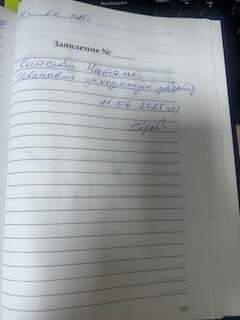 Заявление №
Спасибо Наталье
Ивановне за хорошую работу
11.06.2025 год
165